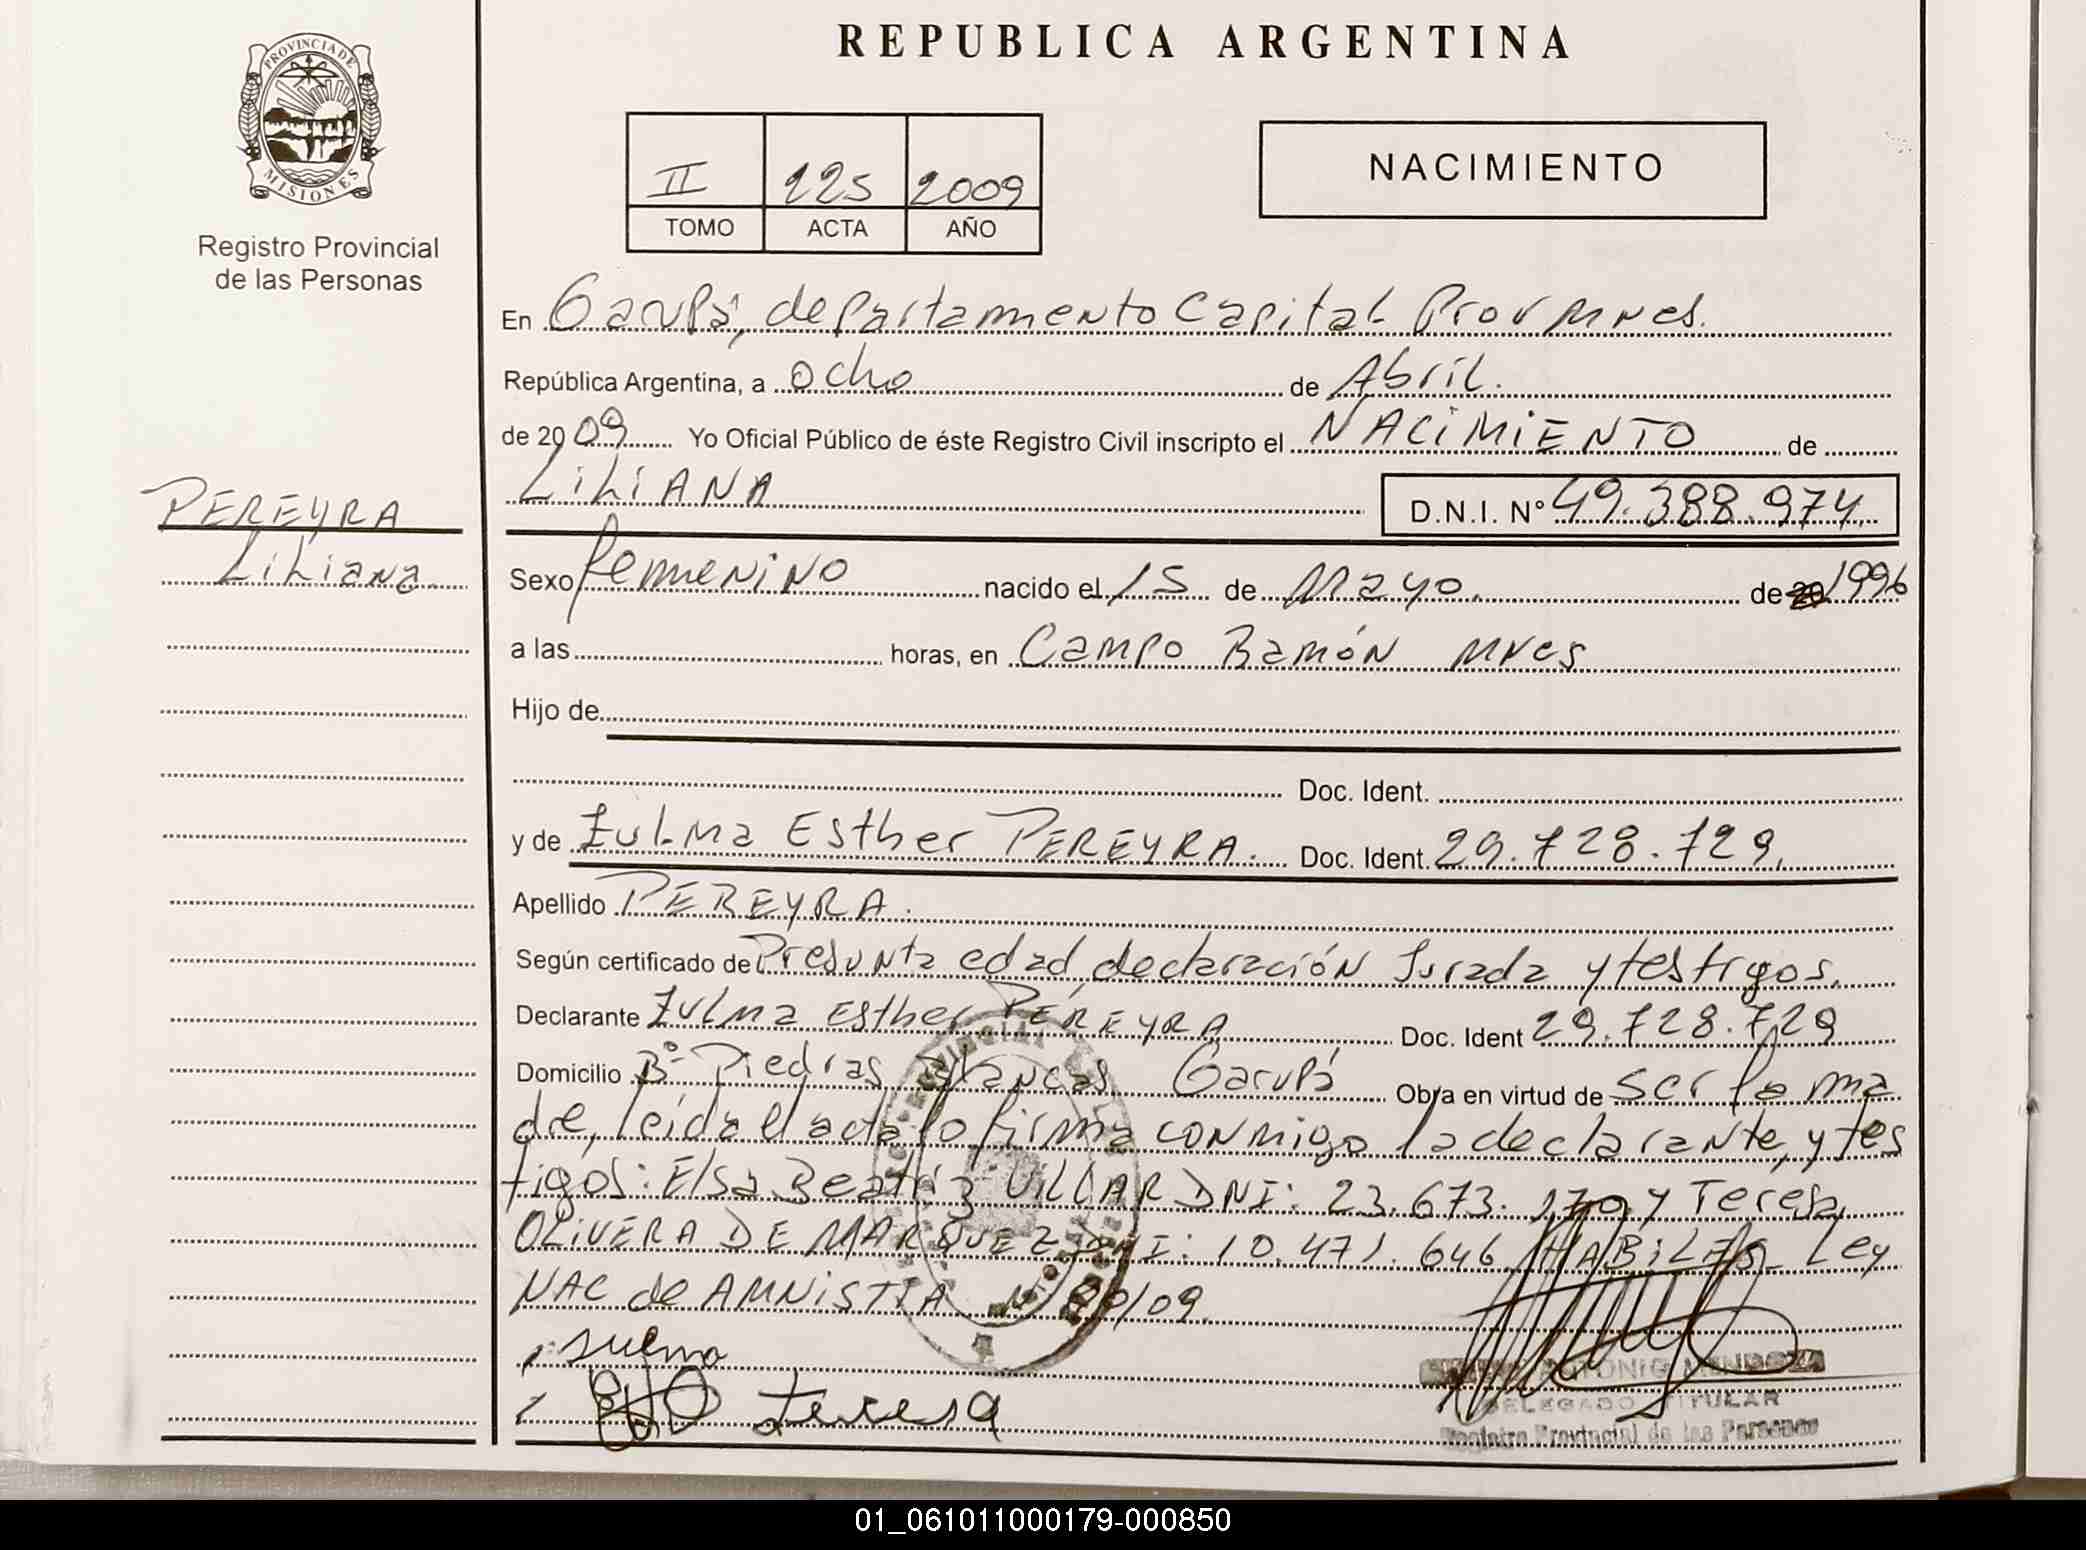 REPUBLICA ARGENTINA
PROVINCIA DE MISIONES
Registro Provincial
de las Personas
II 225 2009
TOMO ACTA AÑO
NACIMIENTO
En Garupá, departamento Capital Prov Mnes.
República Argentina, a ocho de Abril.
de 2009 Yo Oficial Público de éste Registro Civil inscripto el NACIMIENTO de
LILIANA D.N.I. N° 49.388.974.
PEREYRA
Liliana.
Sexo femenino nacido el 15 de Mayo. de 1996
a las horas, en Campo Ramón Mnes
Hijo de
Doc. Ident.
y de Zulma Esther PEREYRA. Doc. Ident. 29.728.729.
Apellido PEREYRA.
Según certificado de Presunta edad, declaración Jurada y testigos.
Declarante Zulma Esther PEREYRA Doc. Ident 29.728.729
Domicilio B° Piedras Blancas Garupá Obra en virtud de ser la ma
dre, leída el acta lo firma conmigo la declarante, y tes
tigos: Elsa Beatríz VILLAR DNI: 23.673.170 y Teresa
OLIVERA DE MARQUEZ DNI: 10.471.646 HABILES. Ley
NAC de AMNISTIA N° /09.
sulma
Teresa
ANTONIO MENDOZA
DELEGADO TITULAR
Registro Provincial de las Personas
01_061011000179-000850